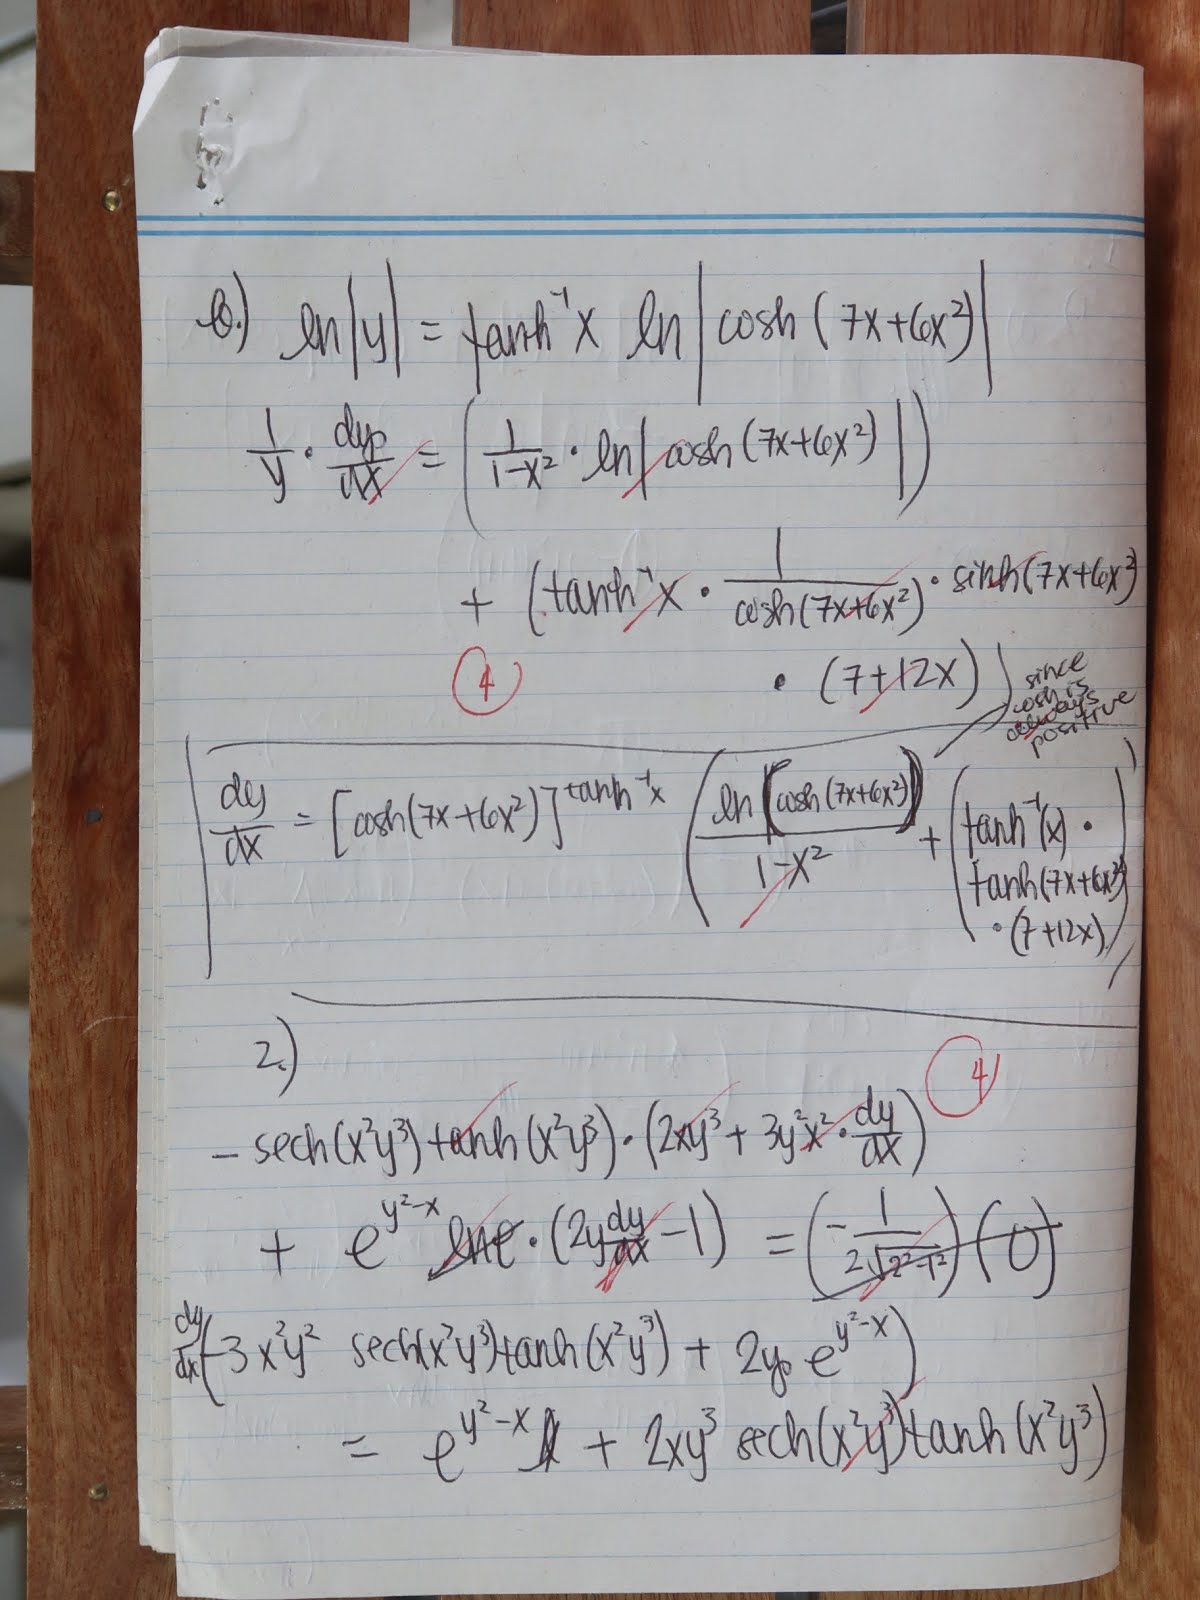 b.) ln|y| = tanh⁻¹x ln|cosh(7x+6x²)|
1/y · dy/dx = (1/(1-x²) · ln|cosh(7x+6x²)|)
+ (tanh⁻¹x · 1/cosh(7x+6x²) · sinh(7x+6x²)
④ · (7+12x))
since
cosh is
always
positive
dy/dx = [cosh(7x+6x²)]^(tanh⁻¹x) (ln(cosh(7x+6x²))/(1-x²) + (tanh⁻¹(x) ·
tanh(7x+6x²)
· (7+12x)))
2.)
④
- sech(x²y³)tanh(x²y³) · (2xy³ + 3y²x² · dy/dx)
+ e^(y²-x) lne · (2y dy/dx - 1) = (- 1/(2√(2²-1²))) (0)
dy/dx (-3x²y² sech(x²y³)tanh(x²y³) + 2y e^(y²-x))
= e^(y²-x) + 2xy³ sech(x²y³)tanh(x²y³)